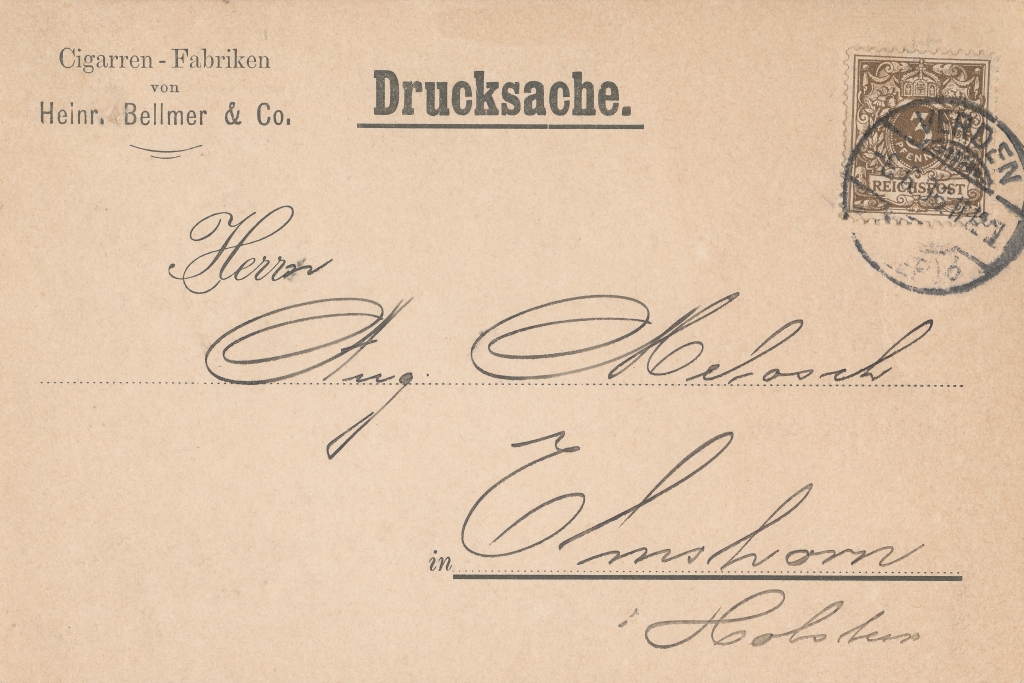 Cigarren - Fabriken
von
Heinr. Bellmer & Co.
Drucksache.
PFENNIG
REICHSPOST
VERDEN
Herrn
Aug. Melosch
in Elmshorn
i Holstein